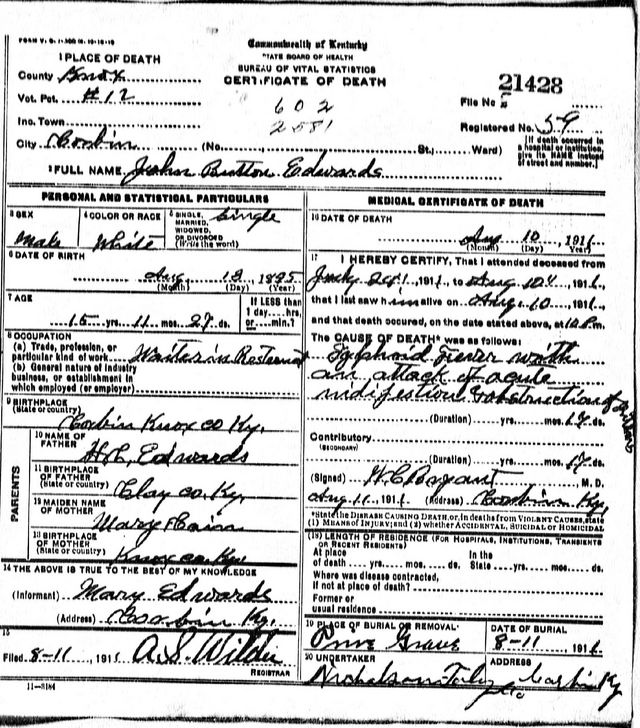 Commonwealth of Kentucky
STATE BOARD OF HEALTH
BUREAU OF VITAL STATISTICS
CERTIFICATE OF DEATH
1 PLACE OF DEATH
County Knox
Vot. Pct. #12
Inc. Town
City Corbin (No. St.; Ward)
602
2581
21428
File No.
Registered No. 59
[If death occurred in a hospital or institution, give its NAME instead of street and number.]
2 FULL NAME John Button Edwards
PERSONAL AND STATISTICAL PARTICULARS
3 SEX
Male
4 COLOR OR RACE
White
5 SINGLE, MARRIED, WIDOWED, OR DIVORCED (Write the word)
Single
6 DATE OF BIRTH
Aug. 13, 1895
(Month) (Day) (Year)
7 AGE
15 yrs. 11 mos. 27 ds.
If LESS than 1 day....hrs. or....min.?
8 OCCUPATION
(a) Trade, profession, or particular kind of work Waiter in
(b) General nature of industry business, or establishment in which employed (or employer)
9 BIRTHPLACE
(State or country)
Corbin Knox co Ky.
PARENTS
10 NAME OF FATHER
Edwards
11 BIRTHPLACE OF FATHER
(State or country)
Clay co. Ky.
12 MAIDEN NAME OF MOTHER
Mary
13 BIRTHPLACE OF MOTHER
(State or country)
Knox co. Ky.
14 THE ABOVE IS TRUE TO THE BEST OF MY KNOWLEDGE
(Informant) Mary Edwards
(Address) Corbin Ky.
15
Filed 8-11, 1911 A.S. Wilder
REGISTRAR
11-3184
MEDICAL CERTIFICATE OF DEATH
16 DATE OF DEATH
Aug 10, 1911
(Month) (Day) (Year)
17 I HEREBY CERTIFY, That I attended deceased from
July, 1911, to Aug 10, 1911,
that I last saw him alive on Aug. 10, 1911,
and that death occurred, on the date stated above, at m.
The CAUSE OF DEATH* was as follows:
Typhoid Fever with
an attack of acute
indigestion & obstruction of
(Duration) yrs. mos. 17 ds.
Contributory
(SECONDARY)
(Duration) yrs. mos. 17 ds.
(Signed) Bryant, M. D.
Aug 11, 1911 (Address) Corbin Ky.
*State the DISEASE CAUSING DEATH, or, in deaths from VIOLENT CAUSES, state
(1) MEANS OF INJURY; and (2) whether ACCIDENTAL, SUICIDAL or HOMICIDAL
(18) LENGTH OF RESIDENCE (FOR HOSPITALS, INSTITUTIONS, TRANSIENTS OR RECENT RESIDENTS)
At place of death yrs. mos. ds. In the State yrs. mos. ds.
Where was disease contracted,
if not at place of death?
Former or
usual residence
19 PLACE OF BURIAL OR REMOVAL
Grave
DATE OF BURIAL
8-11, 1911
20 UNDERTAKER
Nicholson
ADDRESS
Corbin Ky